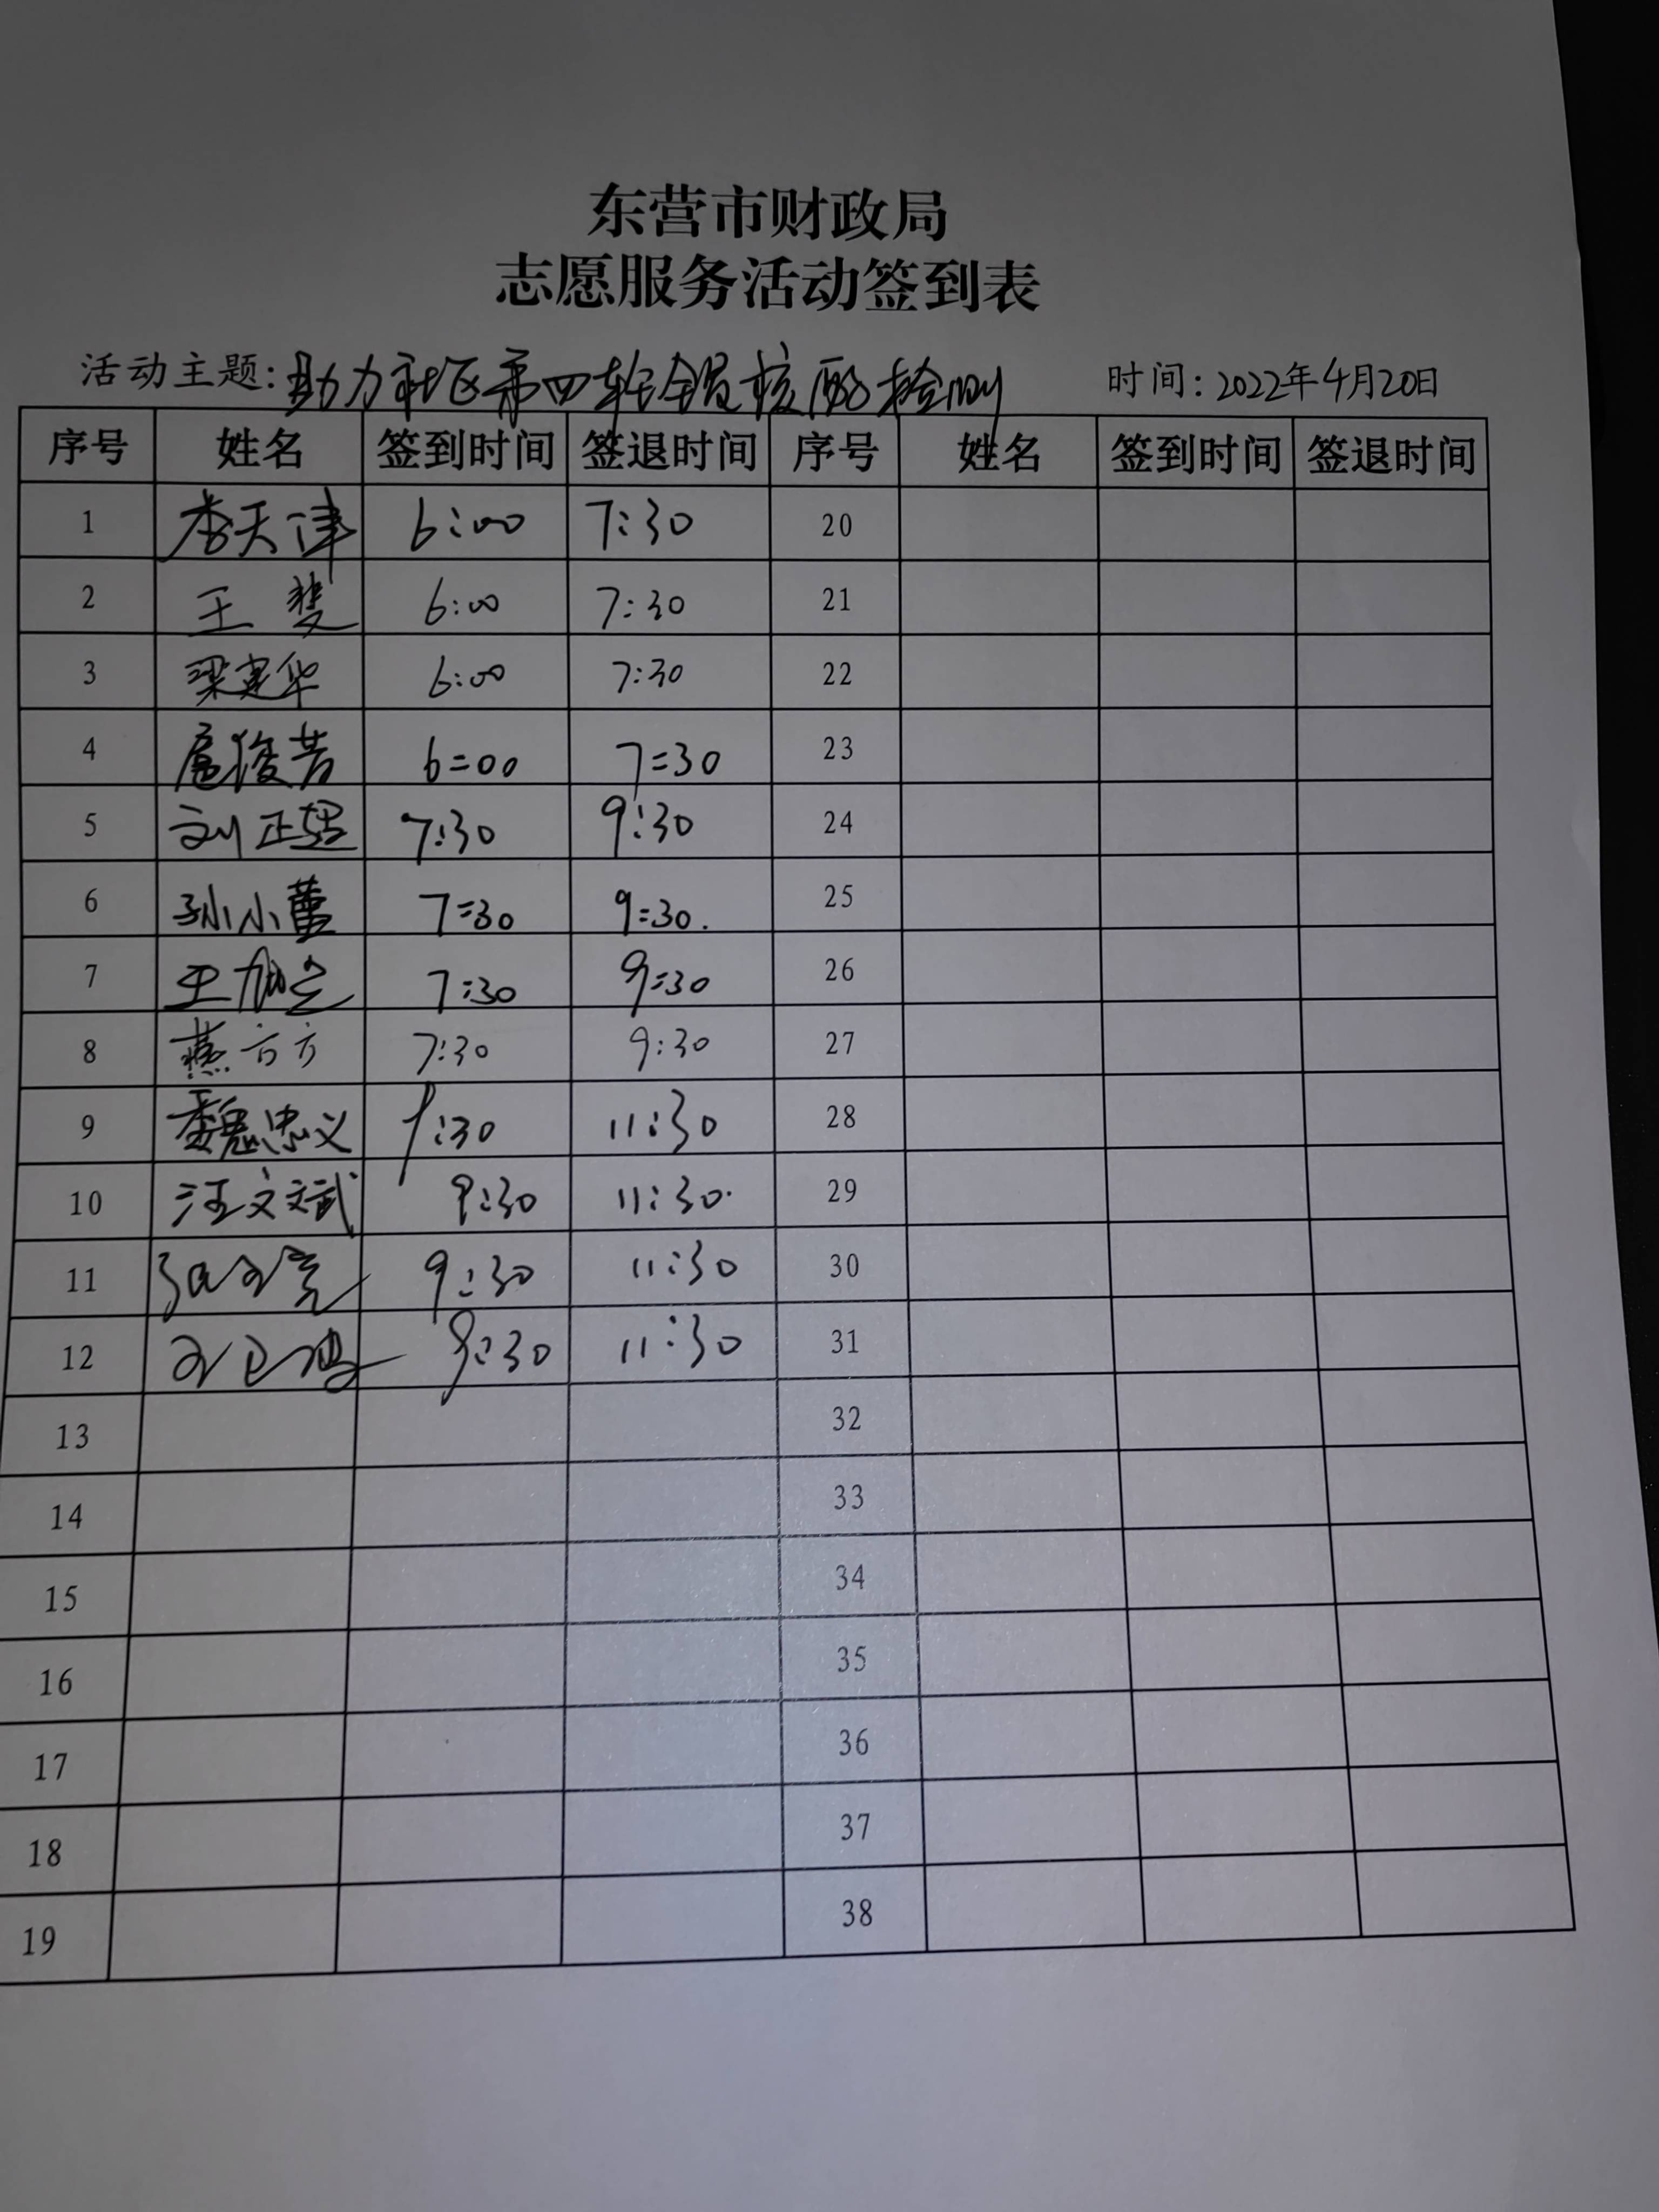 东营市财政局
志愿服务活动签到表
活动主题：助力社区第四轮全员核酸检测 时间：2022年4月20日
序号 姓名 签到时间 签退时间 序号 姓名 签到时间 签退时间
1 李天津 6:00 7:30 20
2 王斐 6:00 7:30 21
3 梁建华 6:00 7:30 22
4 扈俊芳 6=00 7=30 23
5 刘正强 7:30 9:30 24
6 孙小蕾 7=30 9=30. 25
7 王 7:30 9=30 26
8 燕方方 7:30 9:30 27
9 魏忠义 9:30 11:30 28
10 汪文斌 9:30 11:30. 29
11 9:30 11:30 30
12 9:30 11:30 31
13 32
14 33
15 34
16 35
17 36
18 37
19 38